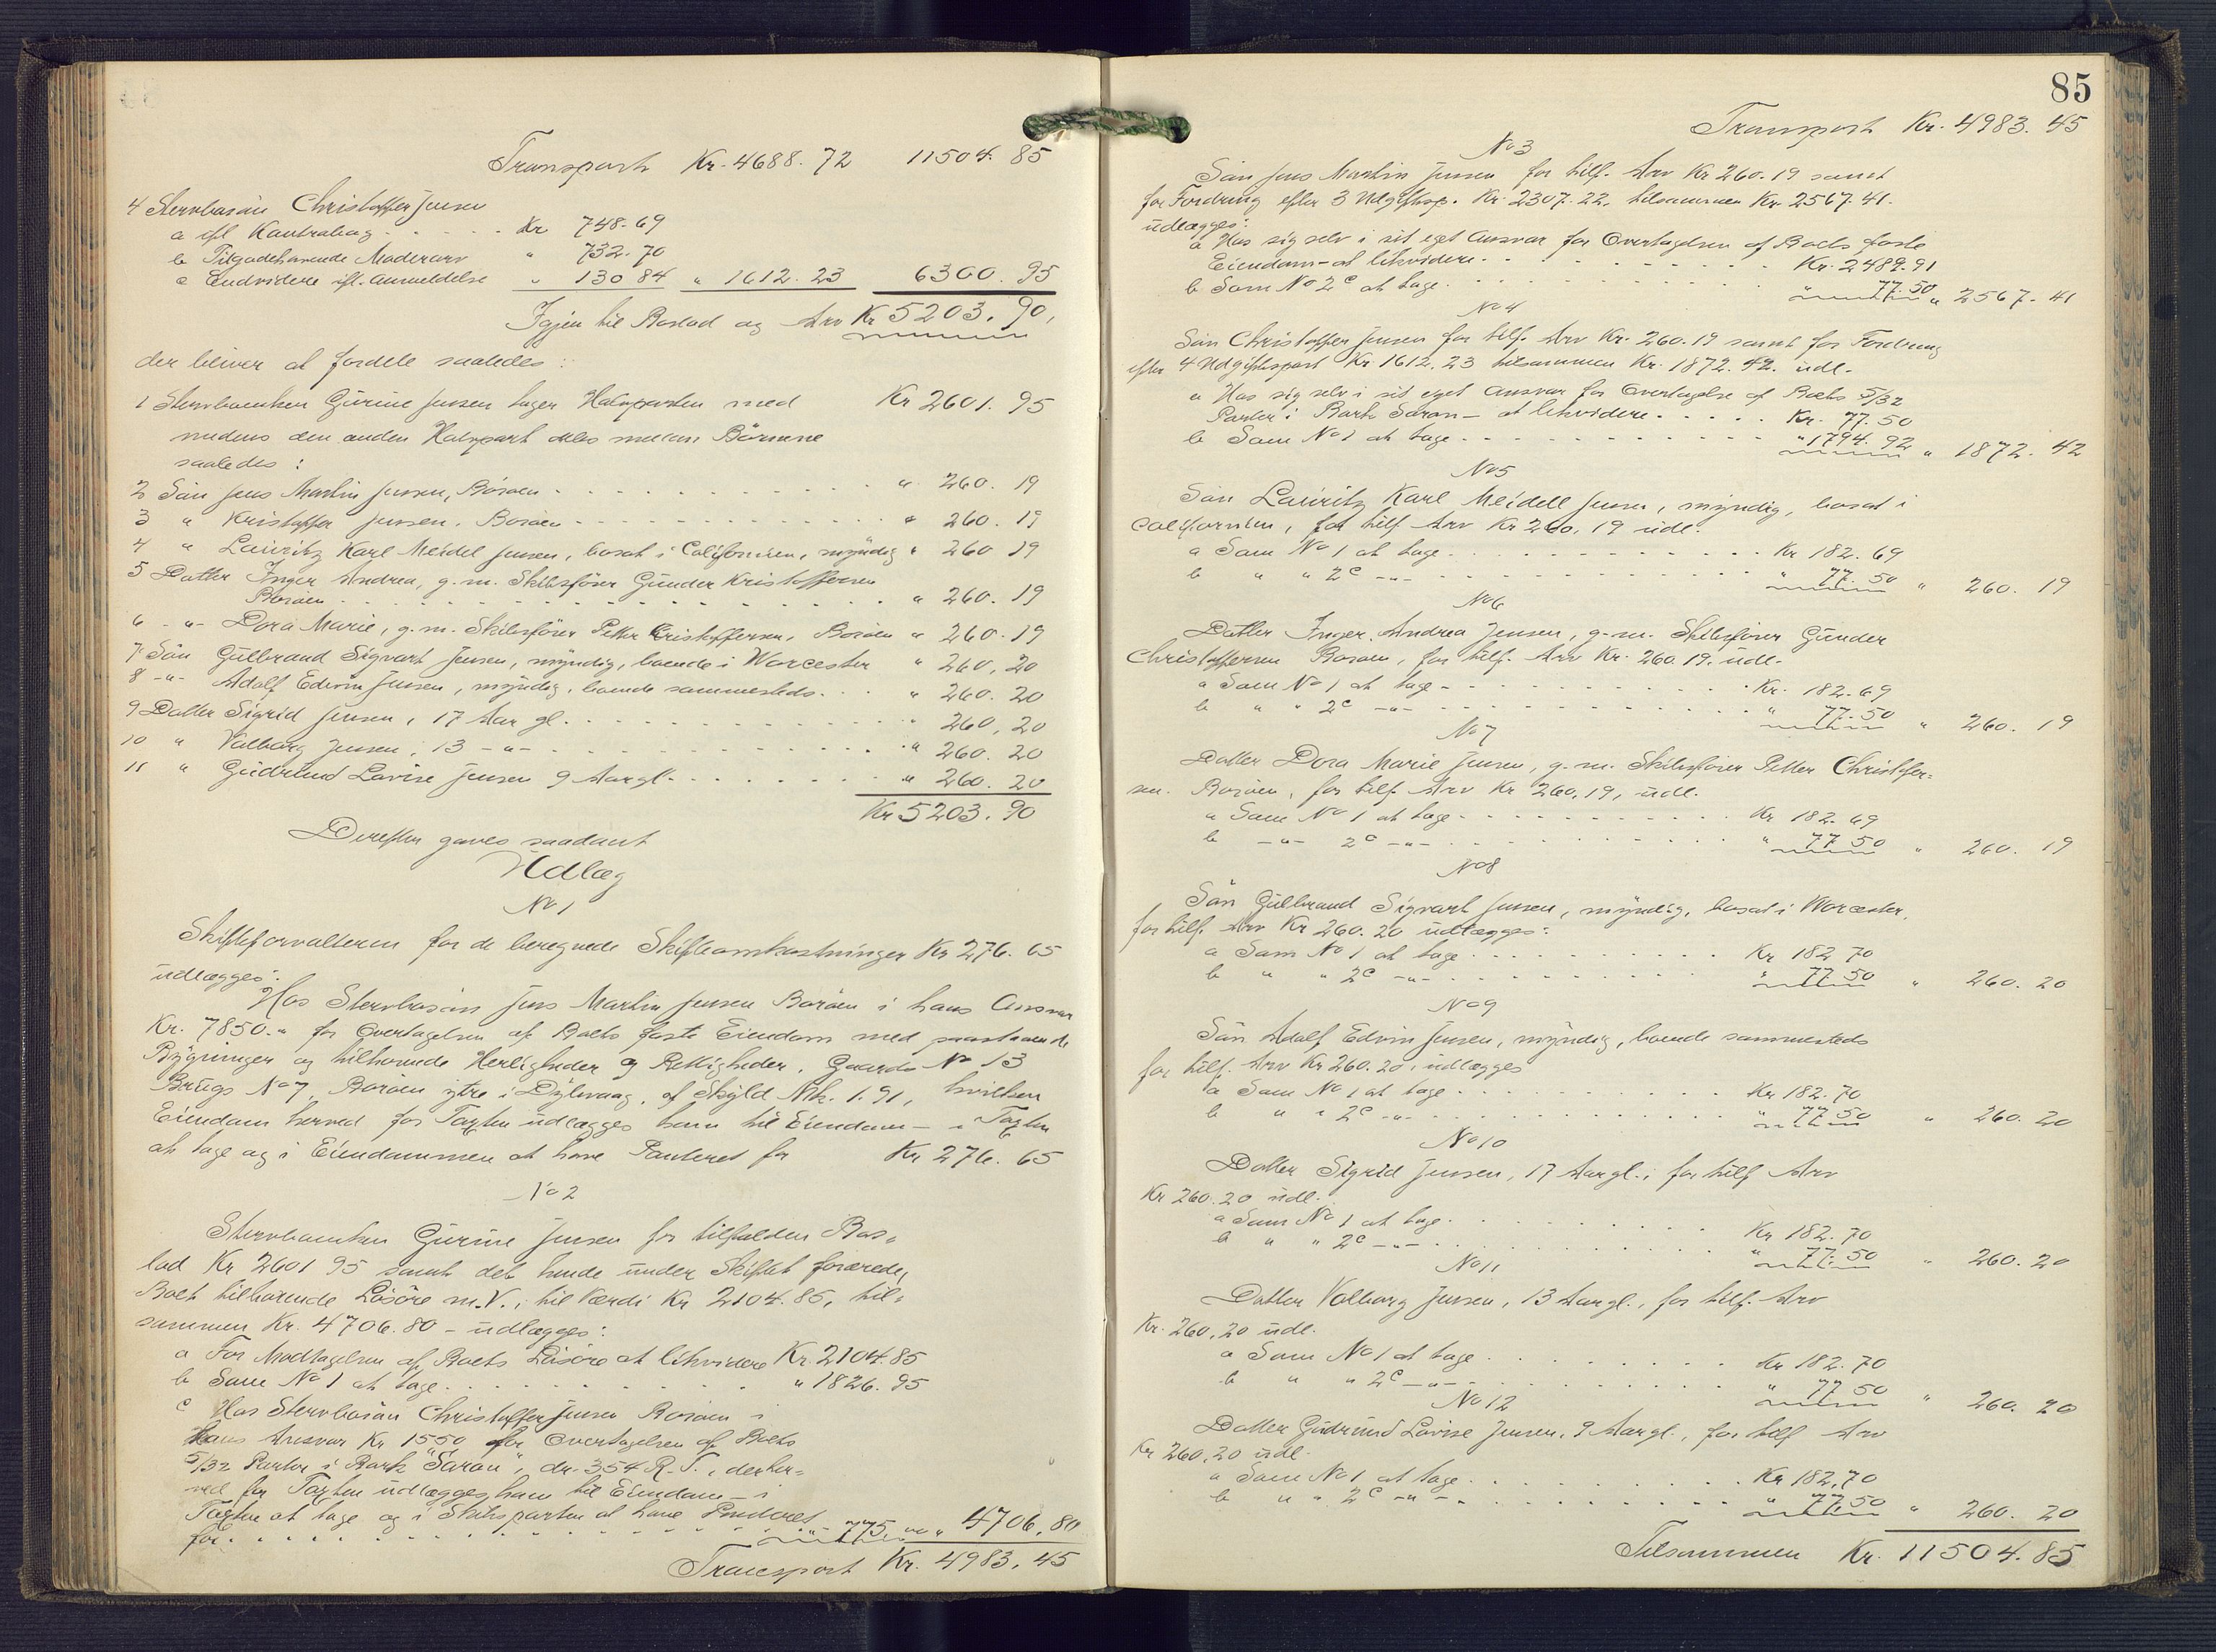 Transport Kr. 4688. 72 11504. 85
4 Stervbosön Christoffer Jensen
a ifl. Kontrabog . . . . . Kr 748. 69
b Tilgodehavende Mödrearv " 732. 70
c Endvidere ifl. Anmeldelse " 130 84 " 1612. 23 6300. 95
Igjen til Boslod og Arv Kr 5203. 90,
der bliver at fordele saaledes :
1 Stervboenken Gürine Jensen tager Halvparten med Kr 2601. 95
medens den anden Halvpart deles mellem Börnene
saaledes :
2 Sön Jens Martin Jensen, Boröen . . . . . " 260. 19
3 " Kristoffer Jensen, Boröen . . . . . " 260. 19
4 " Lauritz Karl Meidel Jensen, bosat i Californien, myndig " 260 19
5 Datter Inger Andrea, g. m. Skibsförer Günder Kristoffersen
Boröen . . . . . " 260. 19
6 -"- Dora Marie, g. m. Skibsförer Petter Cristoffersen, Boröen " 260. 19
7 Sön Gülbrand Sigvart Jensen, myndig, boende i Worcester " 260, 20
8 -"- Adolf Edvin Jensen, myndig, boende sammesteds . . . " 260. 20
9 Datter Sigrid Jensen, 17 Aar gl. . . . . . " 260, 20
10 " Valborg Jensen, 13 -"- . . . . . " 260. 20
11 " Güdründ Lovise Jensen 9 Aar gl. . . . . . " 260. 20
Kr 5203. 90
Derefter gaves saadant
Udlæg
No 1
Skifteforvalteren for de beregnede Skifteomkostninger Kr 276. 65
udlægges:
Hos Stervbosön Jens Martin Jensen Boröen i hans Ansvar
Kr. 7850. " for Overtagelsen af Boets faste Eiendom med paastaaende
Bygninger og tilhörende Herligheder og Rettigheder, Gaards No 13
Brugs No 7, Boröen ytre i Dybvaag, af Skyld Mk. 1. 91, hvilken
Eiendom herved for Taxten udlægges ham til Eiendom – i Taxten
at tage og i Eiendommen at have Panteret for Kr 276. 65
No 2
Stervboenken Gürine Jensen for tilfalden Bos-
lod Kr 2601 95 samt det hende under Skiftet forærede,
Boet tilhörende Lösöre m. V., til Værdi Kr 2104. 85, til-
sammen Kr. 4706. 80 – udlægges:
a For Modtagelsen af Boets Lösöre at likvidere Kr. 2104. 85
b Som No 1 at tage . . . . . " 1826. 95
c Hos Stervbosön Christoffer Jensen Boröen i
hans Ansvar Kr 1550 for Overtagelsen af Boets
5/32 Parter i Bark "Saron", dr. 354 R. T., der her-
ved for Taxten udlægges ham til Eiendom – i
Taxten at tage og i Skibsparten at have Panteret
for . . . . . " 775. " " 4706. 80
Transport Kr. 4983. 45
85
Transport Kr. 4983. 45
No 3
Sön Jens Martin Jensen for tilf. Arv Kr 260. 19 samt
for Fordring efter 3 Udgiftsp. Kr. 2307. 22, tilsammen Kr 2567. 41.
udlægges:
a Hos sig selv i sit eget Ansvar for Overtagelsen af Boets faste
Eiendom – at likvidere . . . . . Kr. 2489. 91
b Som No 2c at tage . . . . . " 77. 50 " 2567. 41
No 4
Sön Christoffer Jensen for tilf. Arv Kr. 260. 19 samt for Fordring
efter 4 Udgiftspost Kr. 1612. 23 tilsammen Kr. 1872. 42. udl.
a Hos sig selv i sit eget Ansvar for Overtagelse af Boets 5/32
Parter i Bark Saron – at likvidere . . . . . Kr. 77. 50
b Som No 1 at tage . . . . . " 1794. 92 " 1872. 42
No 5
Sön Lauritz Karl Meidell Jensen, myndig, bosat i
Californien, for tilf. Arv Kr 260. 19 udl.
a Som No 1 at tage . . . . . Kr 182. 69
b " " 2c -"- . . . . . " 77. 50 " 260. 19
No 6
Datter Inger Andrea Jensen, g. m. Skibsförer Günder
Christoffersen Boröen, for tilf. Arv Kr. 260. 19. udl.
a Som No 1 at tage . . . . . Kr. 182. 69
b " " 2c -"- . . . . . " 77. 50 " 260. 19
No 7
Datter Dora Marie Jensen, g. m. Skibsförer Petter Christoffer-
sen. Boröen, for tilf. Arv Kr 260, 19, udl.
a Som No 1 at tage . . . . . Kr 182. 69
b -"- 2c -"- . . . . . " 77 50 " 260. 19
No 8
Sön Gülbrand Sigvart Jensen, myndig, bosat i Worcester,
for tilf. Arv Kr 260. 20 udlægges:
a Som No 1 at tage . . . . . Kr 182 70
b " " 2c -"- . . . . . " 77 50 " 260. 20
No 9
Sön Adolf Edvin Jensen, myndig, boende sammesteds
for tilf. Arv Kr 260. 20, udlægges
a Som No 1 at tage . . . . . Kr 182. 70
b " " 2c -"- . . . . . " 77 50 " 260. 20
No 10
Datter Sigrid Jensen, 17 Aar gl., for tilf. Arv
Kr 260. 20 udl.
a Som No 1 at tage . . . . . Kr 182. 70
b " " 2c -"- . . . . . " 77. 50 " 260. 20
No 11
Datter Valborg Jensen, 13 Aar gl., for tilf. Arv
Kr. 260, 20 udl.
a Som No 1 at tage . . . . . Kr 182. 70
b " " 2c -"- . . . . . " 77 50 " 260. 20
No 12
Datter Güdründ Lovise Jensen, 9 Aar gl., for tilf Arv
Kr 260, 20 udl.
a Som No 1 at tage . . . . . Kr 182, 70
b " " 2c -"- . . . . . " 77 50 " 260. 20
Tilsammen Kr. 11504. 85